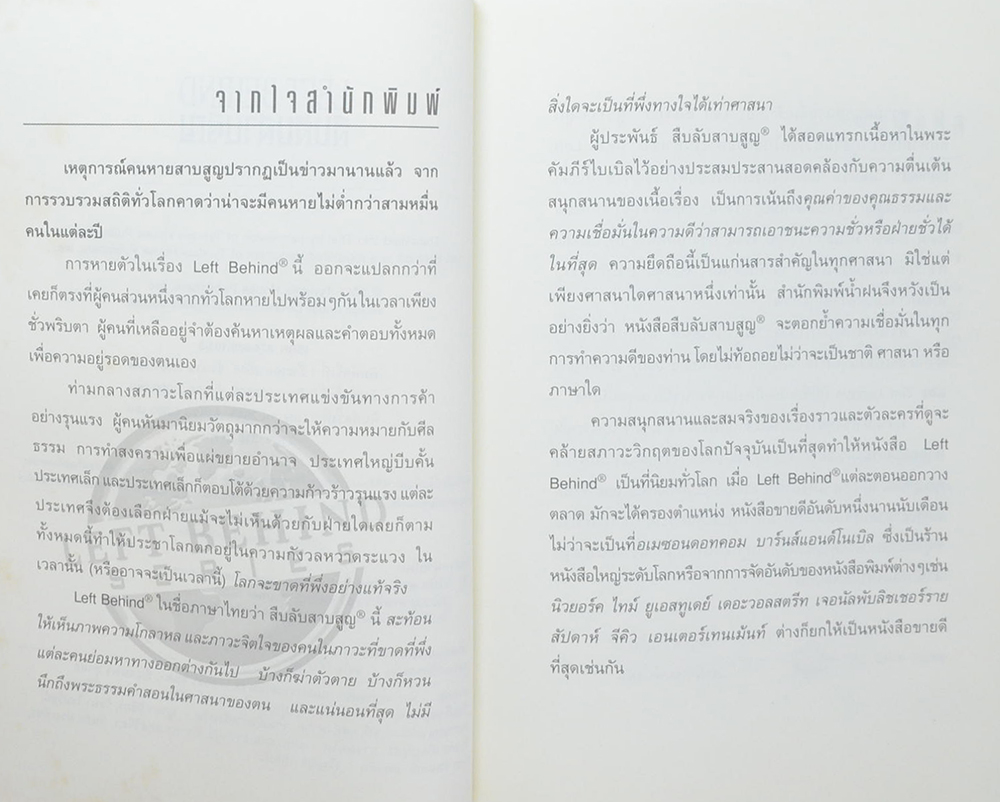 จากใจสำนักพิมพ์
เหตุการณ์คนหายสาบสูญปรากฏเป็นข่าวมานานแล้ว จาก
การรวบรวมสถิติทั่วโลกคาดว่าน่าจะมีคนหายไม่ต่ำกว่าสามหมื่น
คนในแต่ละปี
การหายตัวในเรื่อง Left Behind® นี้ ออกจะแปลกกว่าที่
เคยก็ตรงที่ผู้คนส่วนหนึ่งจากทั่วโลกหายไปพร้อมๆกันในเวลาเพียง
ชั่วพริบตา ผู้คนที่เหลืออยู่จำต้องค้นหาเหตุผลและคำตอบทั้งหมด
เพื่อความอยู่รอดของตนเอง
ท่ามกลางสภาวะโลกที่แต่ละประเทศแข่งขันทางการค้า
อย่างรุนแรง ผู้คนหันมานิยมวัตถุมากกว่าจะให้ความหมายกับศีล
ธรรม การทำสงครามเพื่อแผ่ขยายอำนาจ ประเทศใหญ่บีบคั้น
ประเทศเล็ก และประเทศเล็กก็ตอบโต้ด้วยความก้าวร้าวรุนแรง แต่ละ
ประเทศจึงต้องเลือกฝ่ายแม้จะไม่เห็นด้วยกับฝ่ายใดเลยก็ตาม
ทั้งหมดนี้ทำให้ประชาโลกตกอยู่ในความกังวลหวาดระแวง ใน
เวลานั้น (หรืออาจจะเป็นเวลานี้) โลกจะขาดที่พึ่งอย่างแท้จริง
Left Behind® ในชื่อภาษาไทยว่า สืบลับสาบสูญ® นี้ สะท้อน
ให้เห็นภาพความโกลาหล และภาวะจิตใจของคนในภาวะที่ขาดที่พึ่ง
แต่ละคนย่อมหาทางออกต่างกันไป บ้างก็ฆ่าตัวตาย บ้างก็หวน
นึกถึงพระธรรมคำสอนในศาสนาของตน และแน่นอนที่สุด ไม่มี
LEFT BEHIND
SERIES
สิ่งใดจะเป็นที่พึ่งทางใจได้เท่าศาสนา
ผู้ประพันธ์ สืบลับสาบสูญ® ได้สอดแทรกเนื้อหาในพระ
คัมภีร์ไบเบิลไว้อย่างประสมประสานสอดคล้องกับความตื่นเต้น
สนุกสนานของเนื้อเรื่อง เป็นการเน้นถึงคุณค่าของคุณธรรมและ
ความเชื่อมั่นในความดีว่าสามารถเอาชนะความชั่วหรือฝ่ายชั่วได้
ในที่สุด ความยึดถือนี้เป็นแก่นสารสำคัญในทุกศาสนา มิใช่แต่
เพียงศาสนาใดศาสนาหนึ่งเท่านั้น สำนักพิมพ์น้ำฝนจึงหวังเป็น
อย่างยิ่งว่า หนังสือสืบลับสาบสูญ® จะตอกย้ำความเชื่อมั่นในทุก
การทำความดีของท่าน โดยไม่ท้อถอยไม่ว่าจะเป็นชาติ ศาสนา หรือ
ภาษาใด
ความสนุกสนานและสมจริงของเรื่องราวและตัวละครที่ดูจะ
คล้ายสภาวะวิกฤตของโลกปัจจุบันเป็นที่สุดทำให้หนังสือ Left
Behind® เป็นที่นิยมทั่วโลก เมื่อ Left Behind®แต่ละตอนออกวาง
ตลาด มักจะได้ครองตำแหน่ง หนังสือขายดีอันดับหนึ่งนานนับเดือน
ไม่ว่าจะเป็นที่อเมซอนดอทคอม บาร์นส์แอนด์โนเบิล ซึ่งเป็นร้าน
หนังสือใหญ่ระดับโลกหรือจากการจัดอันดับของหนังสือพิมพ์ต่างๆเช่น
นิวยอร์ค ไทม์ ยูเอสทูเดย์ เดอะวอลสตรีท เจอนัลพับลิชเชอร์ราย
สัปดาห์ จีคิว เอนเตอร์เทนเม้นท์ ต่างก็ยกให้เป็นหนังสือขายดี
ที่สุดเช่นกัน